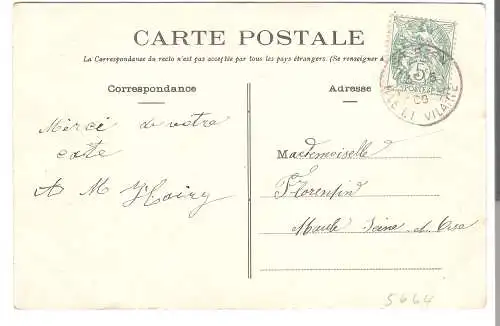 CARTE POSTALE
La Correspondance du recto n'est pas acceptée par tous les pays étrangers. (Se renseigner à
Correspondance
Adresse
5
POSTES
09
ILLE ET VILAINE
Merci de votre
carte
A M
Mademoiselle
Florentin
Maule Seine et Oise
5664